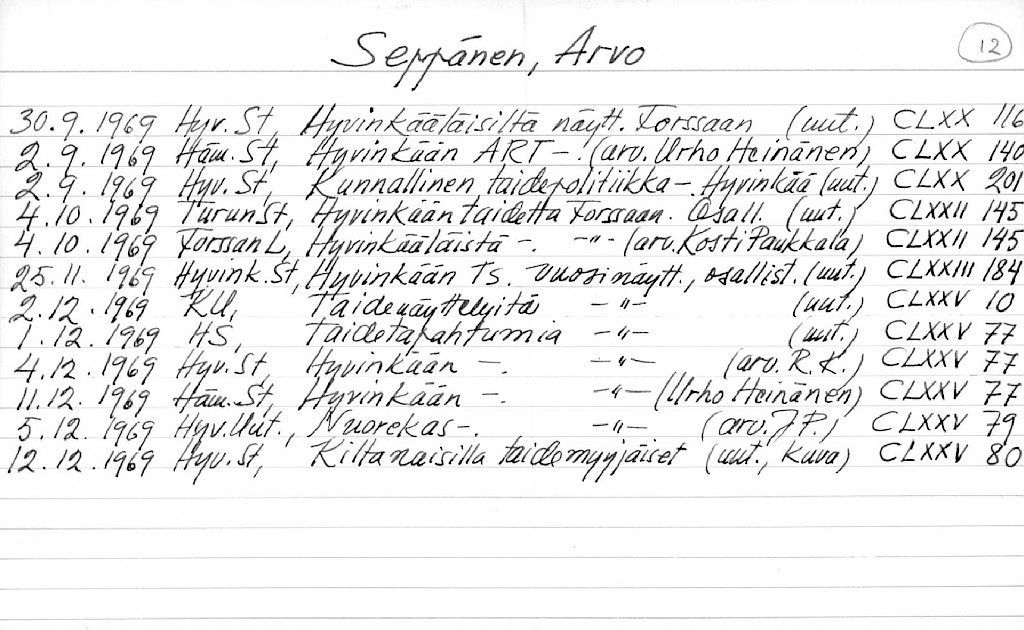 Seppänen, Arvo 12
30.9.1969 Hyv.St, Hyvinkääläisiltä näytt. Forssaan (uut.) CLXX 116
2.9.1969 Häm.St, Hyvinkään ART-. (arv. Urho Heinänen) CLXX 140
2.9.1969 Hyv.St, Kunnallinen taidepolitiikka - Hyvinkää (uut.) CLXX 201
4.10.1969 TurunSt, Hyvinkään taidetta Forssaan. Osall. (uut.) CLXXII 145
4.10.1969 ForssanL, Hyvinkääläistä -. -"- (arv. Kosti Paukkala) CLXXII 145
25.11.1969 Hyvink.St, Hyvinkään Ts. vuosinäytt., osallist. (uut.) CLXXIII 184
2.12.1969 KU, Taidenäyttelyitä -"- (uut.) CLXXV 10
1.12.1969 HS, Taidetapahtumia -"- (uut.) CLXXV 77
4.12.1969 Hyv.St, Hyvinkään -. -"- (arv. R.K.) CLXXV 77
11.12.1969 Häm.St, Hyvinkään -. -"- (Urho Heinänen) CLXXV 77
5.12.1969 Hyv.Uut., Nuorekas -. -"- (arv. JP.) CLXXV 79
12.12.1969 Hyv.St, Kiltanaisilla taidemyyjäiset (uut., kuva) CLXXV 80